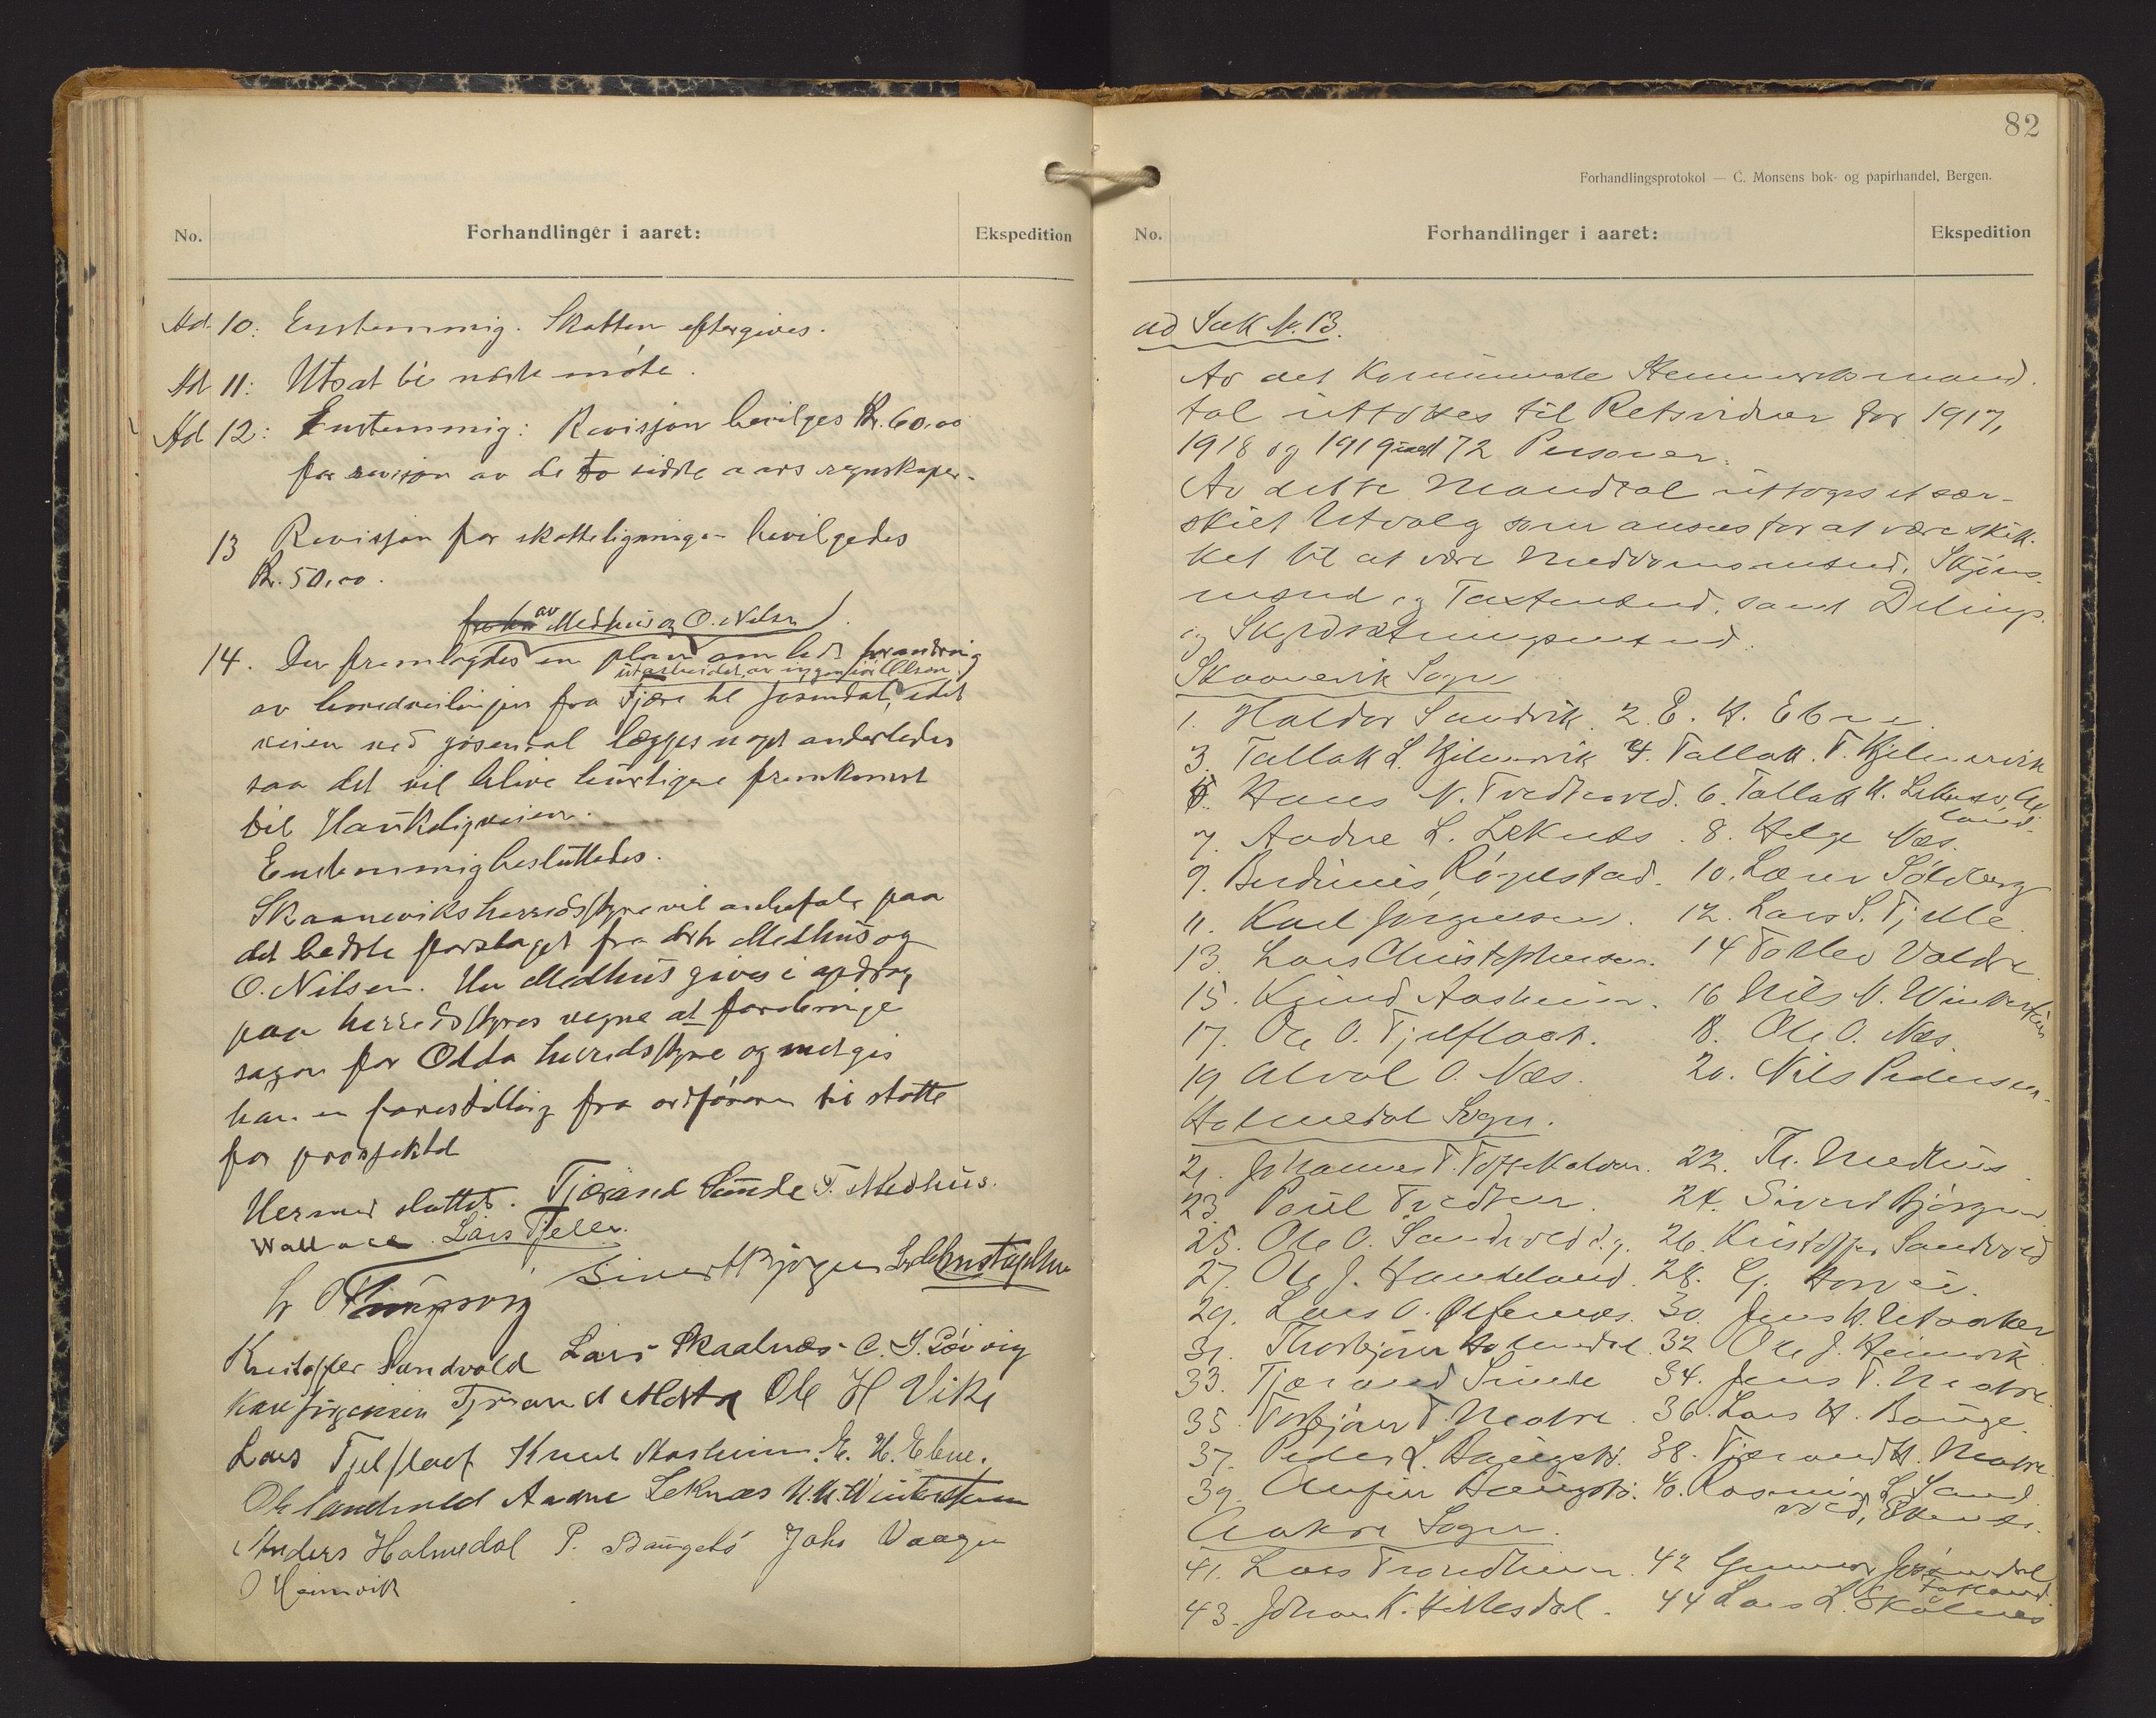 No.
Forhandlinger i aaret:
Ekspedition
Ad 10: Enstemmig. Skatten eftergives.
Ad 11: Utsat til næste møte.
Ad 12: Enstemmig: Revisjon bevilges Kr. 60.00
for revisjon av de to sidste aars regnskaper.
13 Revisjon for skatteligningen bevilgedes
Kr. 50.00.
av Medhus og O. Nilsen
14. Der fremlagdes en plan om forandring
utarbeidet av ingeniør Olsen
av hovedveilinjen fra Fjære til Jøsendal, idet
veien ved Jøsendal lægges noget anderledes
saa det vil blive hurtigere fremkomst
til Haukeligveien.
Enstemmig besluttedes.
Skaaneviks herredsstyre vil anbefale paa
det bedste forslaget fra Medhus og
O. Nilsen. Hr Medhus gives i opdrag
paa herredsstyres vegne at forebringe
sagen for Odda herredsstyre og medgis
han en forestilling fra ordføreren til støtte
for prosjektet
Hermed sluttet. Tjærand Sunde T. Medhus.
Wallace Lars Tjelle.
Sivert Bjørgen
Kristoffer Sandvold Lars Skaalnæs C. J. Søvig
Karl Jørgensen Ole H Vike
Lars Tjelflaat Knut Aasheim. E. H. Ebne.
Ole Sandvold Aadne Leknæs N. N. Wintertun
Anders Holmedal P. Haugstø Johs Vaage
O Heimvik
82
Forhandlingsprotokol — C. Monsens bok- og papirhandel, Bergen.
No.
Forhandlinger i aaret:
Ekspedition
ad Sak N. 13.
Av det Kommunale
tal uttokes til Retsvidner for 1917,
1918 og 1919 med 72 Personer.
Av dette Mandtal uttoges et sær-
skilt Utvalg som ansees for at være skik-
ket til at være Meddomsmænd, Skjøns-
mænd og Taxtmænd, samt Delings
og Skyldsætningsmænd.
Skaanevik Sogn
1. Haldor Sandvik. 2. E. H. Ebne.
3. Tallak L. Kjelmervik 4. Tallak T. Kjelmervik
5. Hans N. Tvedtered. 6. Tallak K.
7. Aadne L. Leknes. 8. Helge Næs.
9. 10. Søldberg
11. Karl Jørgensen. 12. Lars S. Tjelle.
13. Lars Christophersen. 14 Tollev Valdre
15. Knud Aasheim. 16 Nils N. Wintertun
17. Ole O. Tjelflaat. 18. Ole O. Næs.
19 O. Næs. 20. Nils Pedersen.
Holmedal Sogn.
21. Johannes T. 22. Th. Medhus
23. Poul 24. Sivert Bjørgen
25. Ole O. Sandvold d.y. 26. Kristoffer Sandvold
27. Ole J. Handeland. 28. G.
29. Lars O. Ølfernæs. 30. Jens H. Utaaker
31. Thorbjørn Holmedal. 32 Ole J. Heimvik
33. Tjærand Sunde 34. Jens T. Matre.
35. Torbjørn T. Matre. 36. Lars H. Bauge.
37. Peder L. Haugstø. 38. Tjærand H. Matre.
39. Anfin Haugstø. 40. Rasmus L. Sand-
vold,
Aakre Sogn.
41. Lars Trondheim. 42 Gunnar Jøsendal
43. Johan K. Hillesdal. 44 Lars L. Skålnes